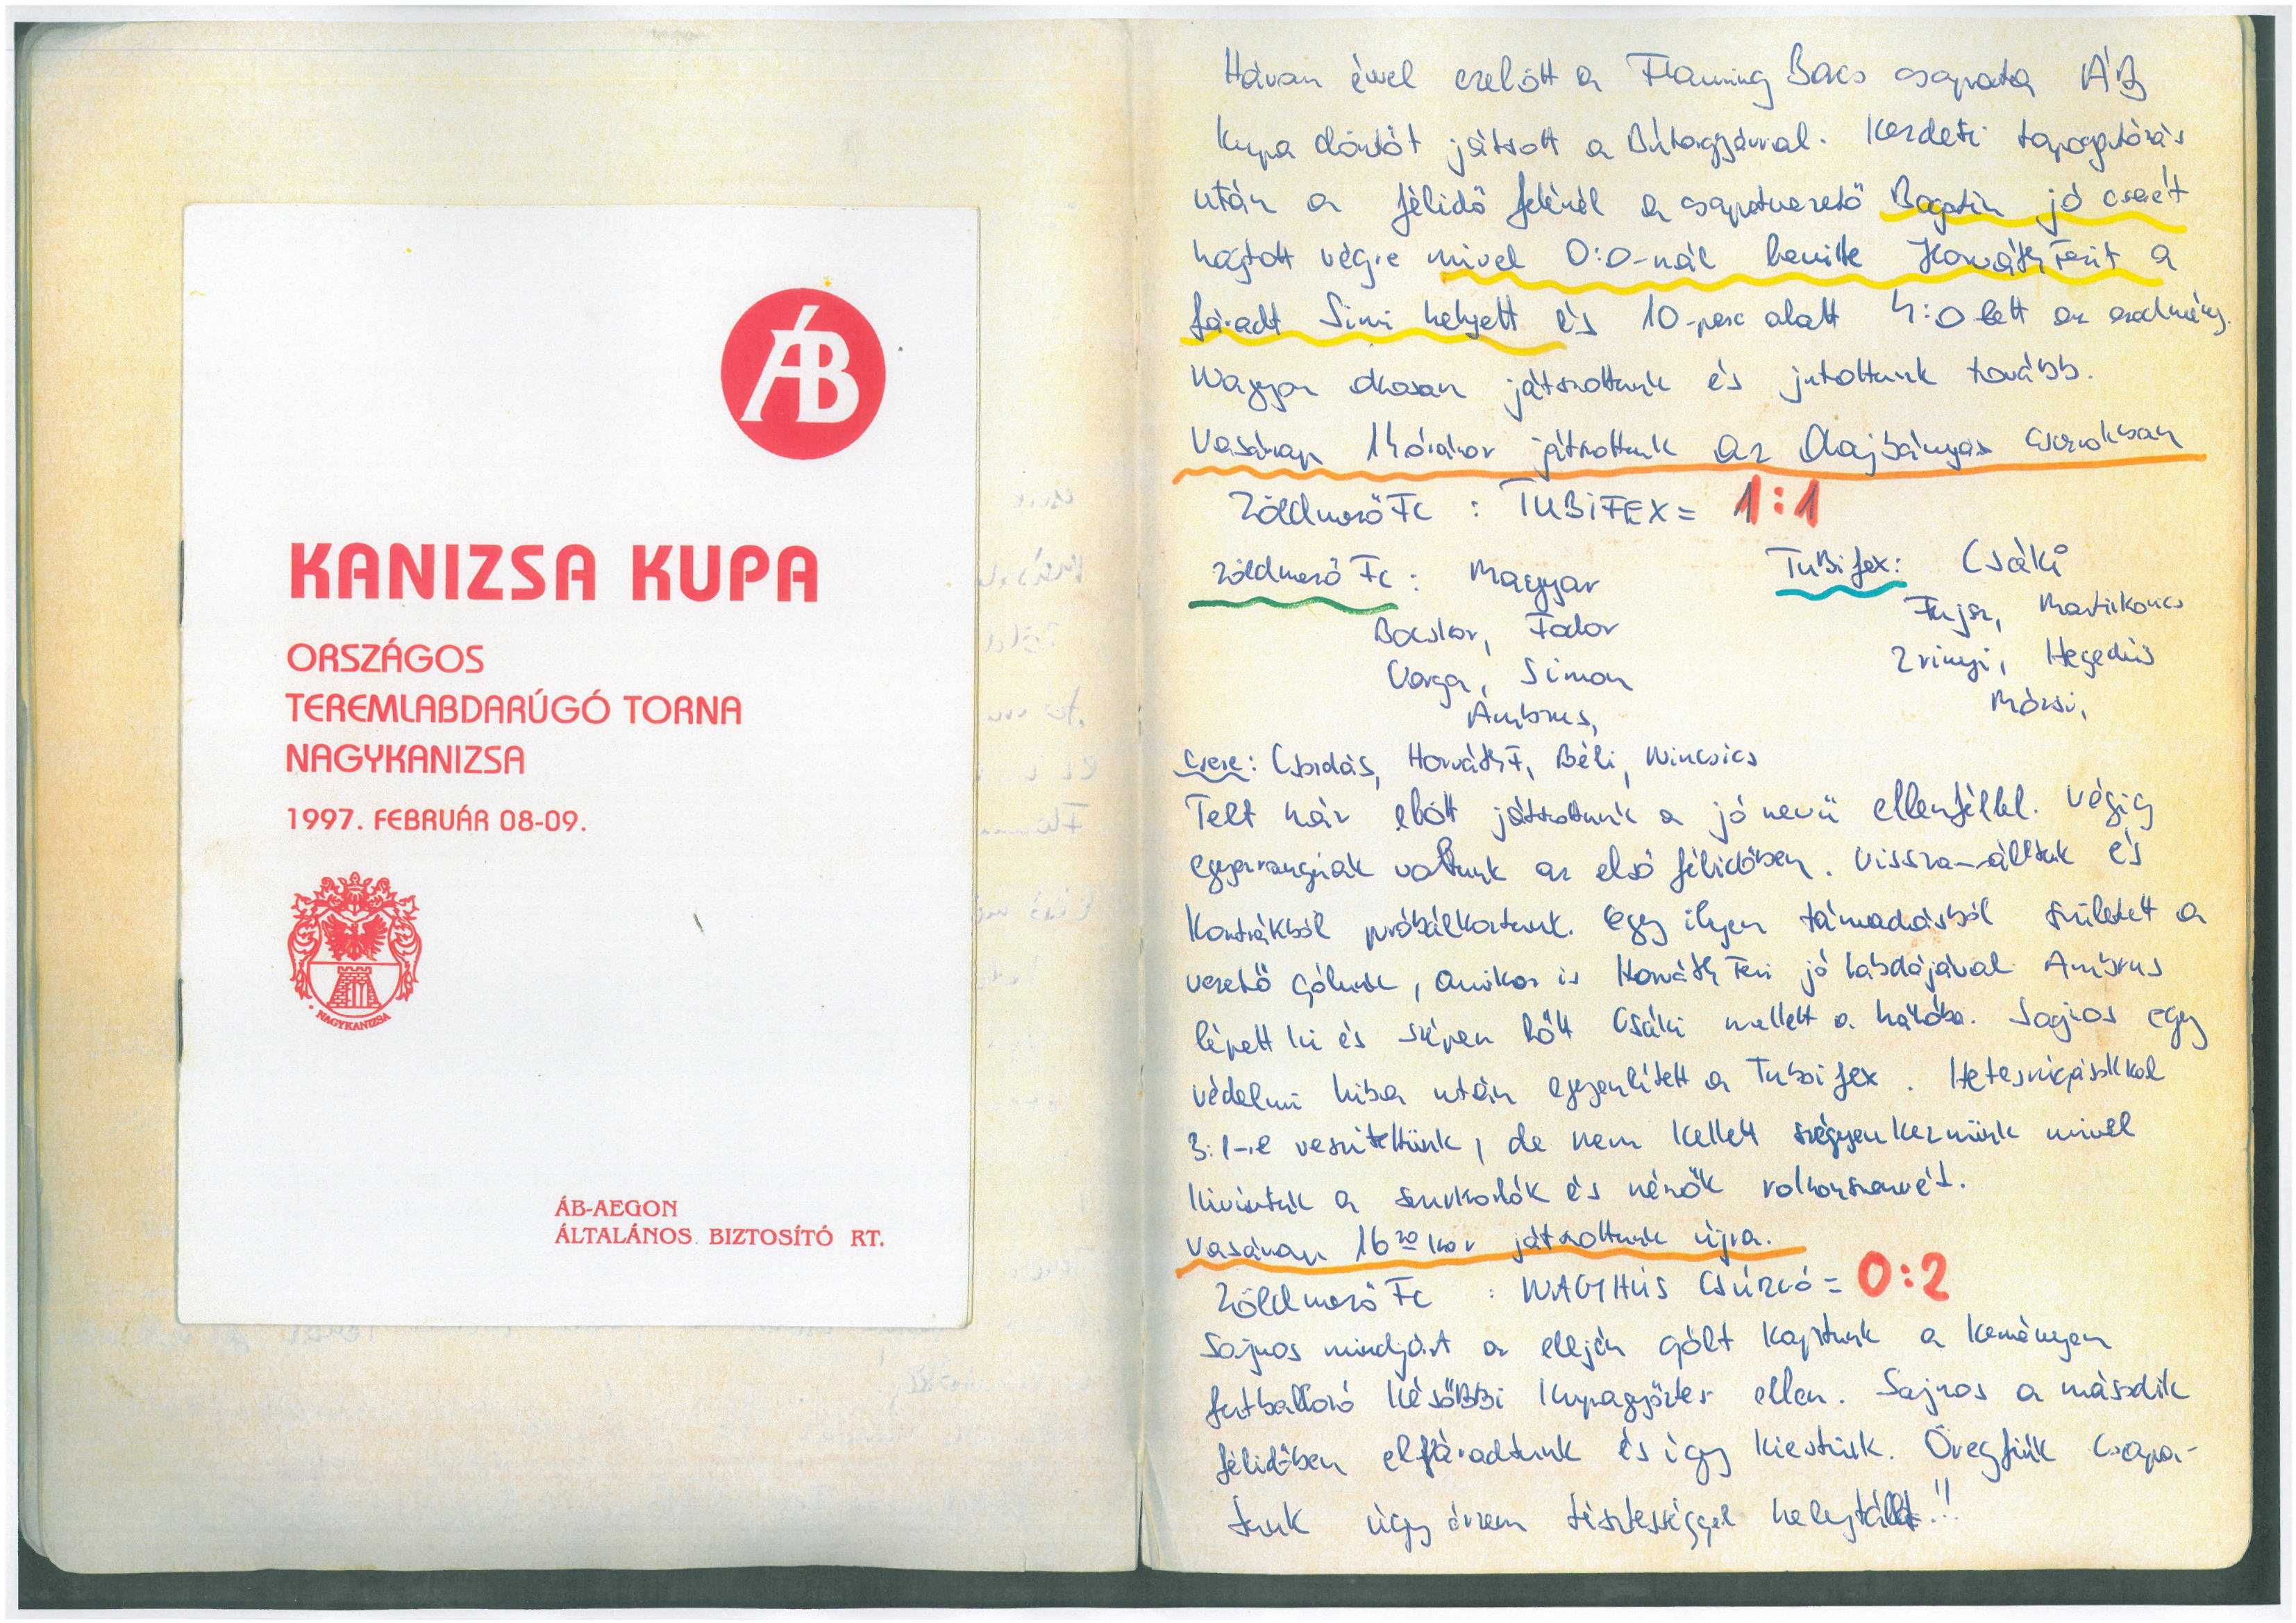 ÁB
KANIZSA KUPA
ORSZÁGOS
TEREMLABDARÚGÓ TORNA
NAGYKANIZSA
1997. FEBRUÁR 08-09.
NAGYKANIZSA
ÁB-AEGON
ÁLTALÁNOS BIZTOSÍTÓ RT.
Három évvel ezelőtt a Flamming Bacs csapata ÁB
Kupa döntőt játsott a Bútorgyárral. Kezdeti tapogatózás
után a félidő felénél a csapatvezető Bogatin jó cserét
hajtott végre mivel 0:0-nál bevitte Horváth Ferit a
fáradt Simi helyett és 10-perc alatt 4:0 lett az eredmény.
Nagyon okosan játszottunk és jutottunk tovább.
Vasárnap 11 órakor játszottunk az Olajbányász csarnokban
Zöldmező Fc : TUBIFEX = 1:1
Zöldmező Fc : Magyar
Bocskor, Fodor
Varga, Simon
Ambrus,
Tubifex: Csáki
Fujsz, Martinkovics
Zrinyi, Hegedüs
Mózsi,
Csere: Csordás, Horváth F, Béli, Vincsics
Telt ház előtt játszottunk a jó nevü ellenféllel. Végig
egyenrangúak voltunk az első félidőben. Vissza-álltunk és
kontrákból próbálkoztunk. Egy ilyen támadásból született a
vezető gólunk, amikor is Horváth Feri jó labdájával Ambrus
lépett ki és szépen lőtt Csáki mellett a hálóba. Sajnos egy
védelmi hiba után egyenlített a Tubifex. Hetesrúgásokkal
3:1-re veszitettünk, de nem kellett szégyenkeznünk mivel
kivívtuk a szurkolók és nézők rokonszenvét.
Vasárnap 16 20 kor játszottunk újra.
Zöldmező Fc : NAGYHÚS CSURGÓ = 0:2
Sajnos mindjárt az elején gólt kaptunk a keményen
futballozó későBBi kupagyőztes ellen. Sajnos a második
félidőben elfáradtunk és így kiestünk. Öregfiúk csapa-
tunk úgy érzem tisztességgel helytállt!!